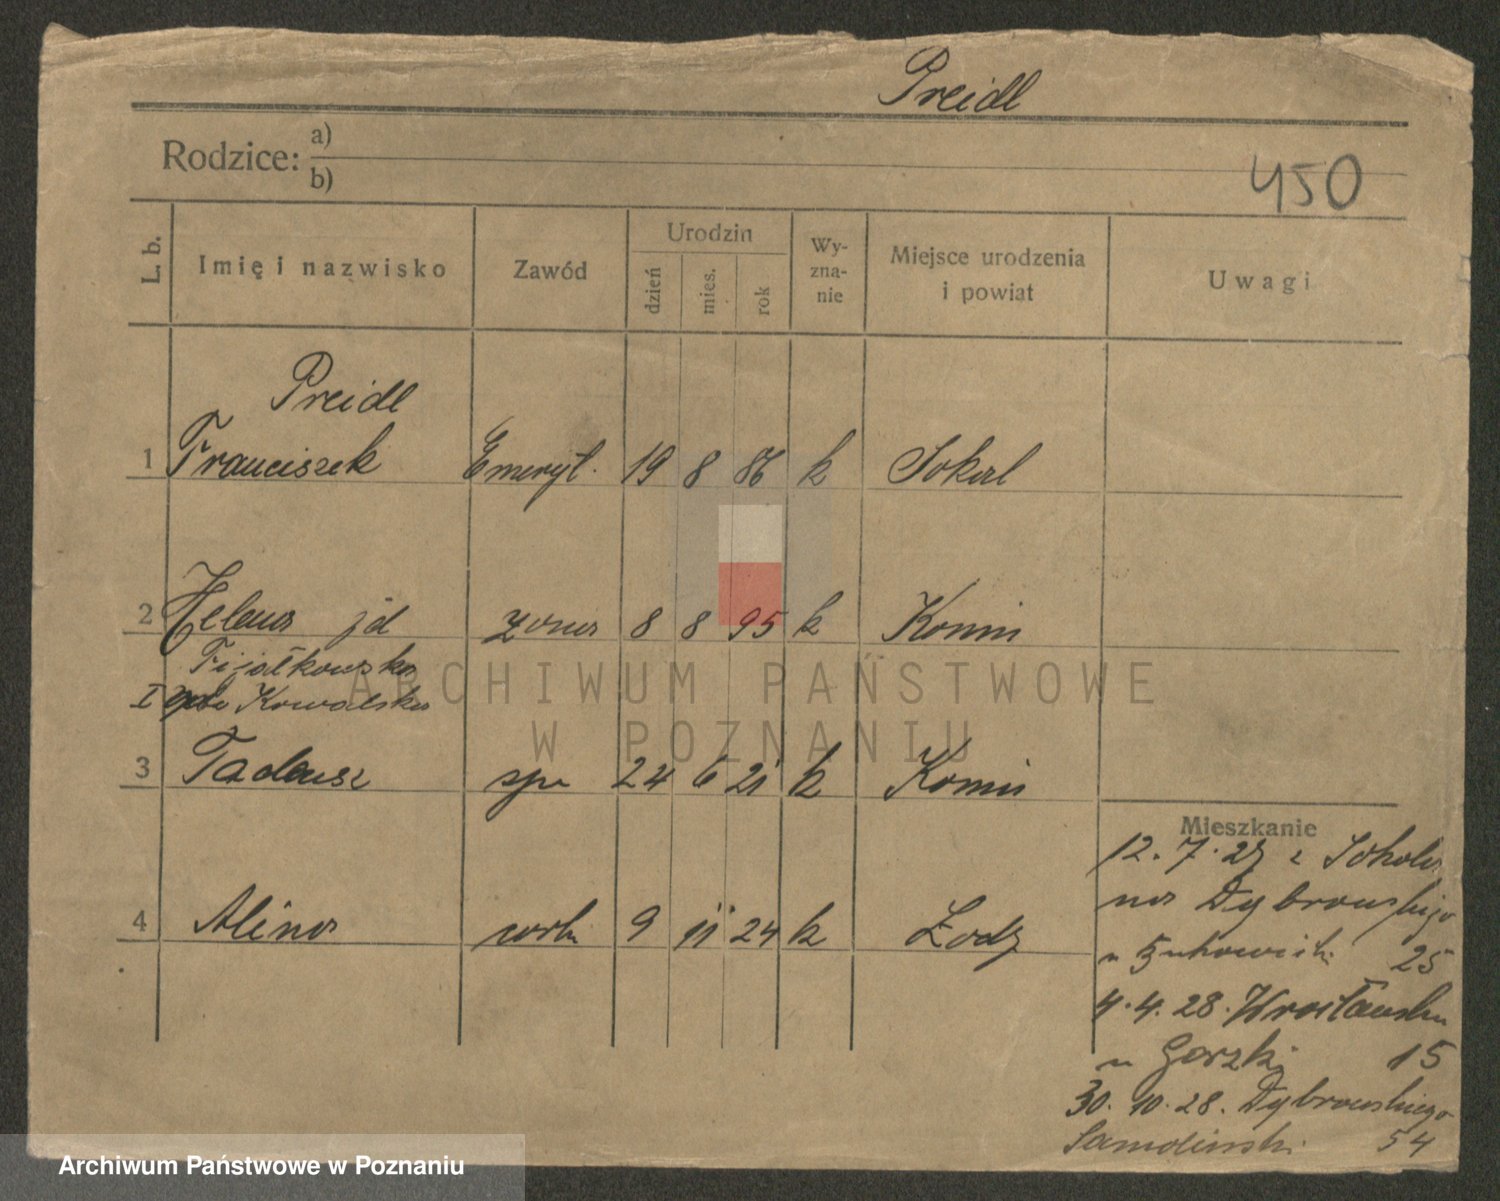 Preidl
Rodzice: a)
b)
450
L. b.
Imię i nazwisko
Zawód
Urodzin
dzień
mies.
rok
Wy-
zna-
nie
Miejsce urodzenia
i powiat
Uwagi
Preidl
1 Franciszek Emeryt. 19 8 86 k Sokal
2 Helena jd żona 8 8 95 k Konin
Fijałkowska
I Kowalska
3 Tadeusz syn 24 6 21 k Konin
Mieszkanie
12.7.27 z
na Dybrowskiego
4 Alina córka 9 11 24 k Łodz
u 25
4.4.28. Wrocławska
u Gorzki 15
30.10.28. Dybrowskiego
54
ARCHIWUM PAŃSTWOWE
W POZNANIU
Archiwum Państwowe w Poznaniu